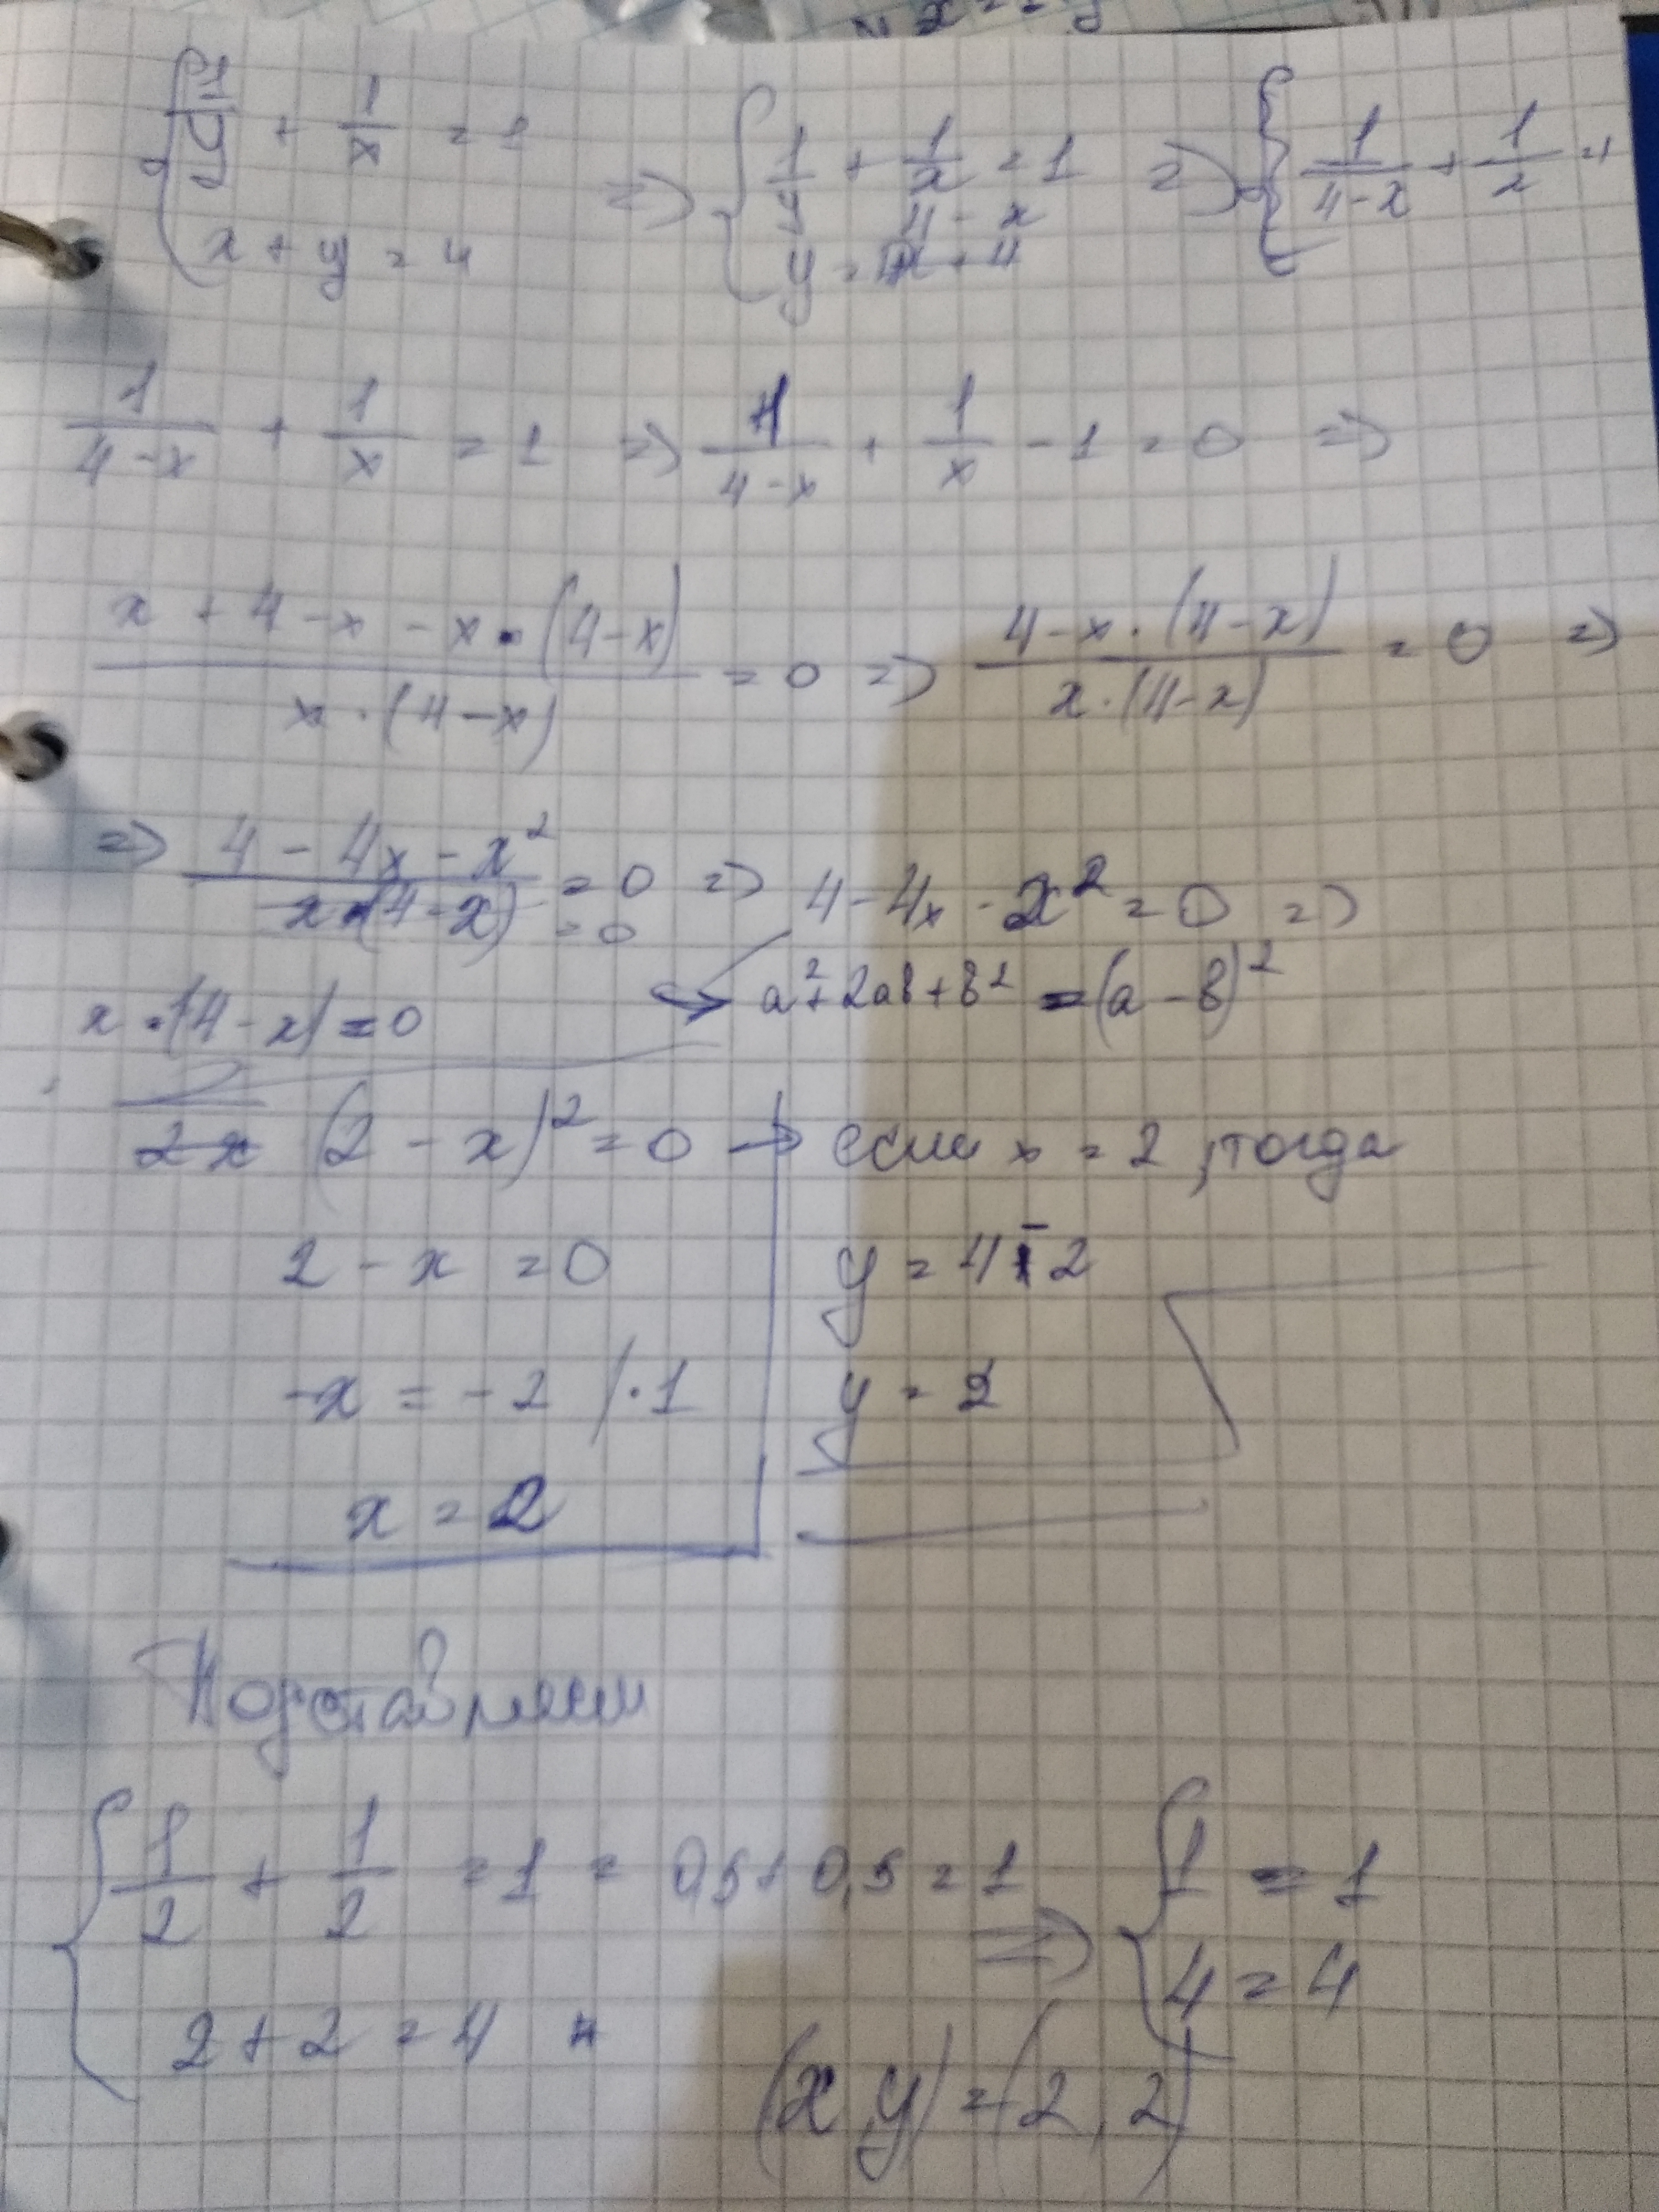 { 1/y + 1/x = 1 => { 1/y + 1/x = 1 => { 1/(4-x) + 1/x = 1
x + y = 4 y = 4 - x
1/(4-x) + 1/x = 1 => 1/(4-x) + 1/x - 1 = 0 =>
(x + 4 - x - x · (4-x))/(x · (4-x)) = 0 => (4 - x · (4-x))/(x · (4-x)) = 0 =>
=> (4 - 4x - x²)/(x · (4-x)) = 0 => 4 - 4x - x² = 0 =>
= 0
x · (4-x) = 0 a² + 2ab + b² = (a - b)²
2x (2 - x)² = 0 → если x = 2, тогда
2 - x = 0 y = 4 - 2
-x = -2 / · 1 y = 2
x = 2
Подставляем
{ 1/2 + 1/2 = 1 = 0,5 + 0,5 = 1 => { 1 = 1
2 + 2 = 4 4 = 4
(x, y) = (2, 2)